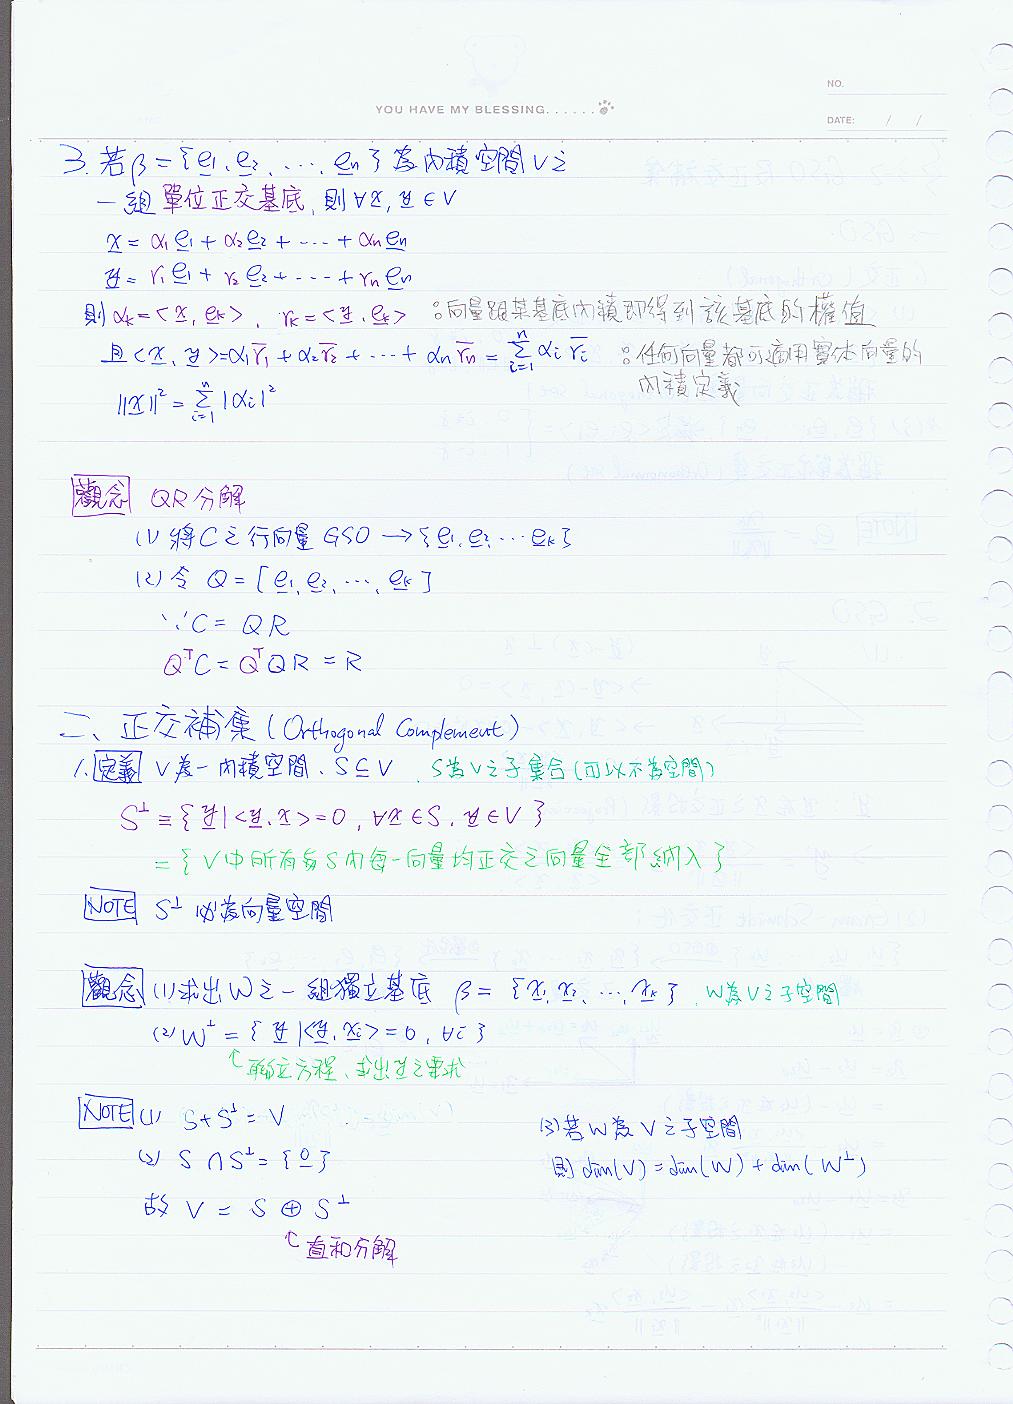 YOU HAVE MY BLESSING......
NO.
DATE: / /
3. 若 β = {e1, e2, ..., en} 為內積空間 V 之
一組單位正交基底, 則 ∀x, y ∈ V
x = α1 e1 + α2 e2 + ... + αn en
y = r1 e1 + r2 e2 + ... + rn en
則 αk = <x, ek>, rk = <y, ek> :向量跟某基底內積即得到該基底的權值
且 <x, y> = α1 r̄1 + α2 r̄2 + ... + αn r̄n = Σ(i=1→n) αi r̄i :任何向量都可適用實体向量的
內積定義
||x||² = Σ(i=1→n) |αi|²
觀念 QR分解
(1) 將C之行向量 GSO → {e1, e2 ... ek}
(2) 令 Q = [e1, e2, ..., ek]
∵ C = QR
QᵀC = QᵀQR = R
二、正交補集 (Orthogonal Complement)
1. 定義 V為一內積空間, S⊆V , S為V之子集合(可以不為空間)
S⊥ ≡ {y | <y, x> = 0, ∀x∈S, y∈V}
= {V中所有與S內每一向量均正交之向量全部納入}
NOTE S⊥ 必為向量空間
觀念 (1) 求出W之一組獨立基底 β = {x1, x2, ..., xk} , W為V之子空間
(2) W⊥ = {y | <y, xi> = 0, ∀i}
聯立方程, 求出y之要求
NOTE (1) S + S⊥ = V
(2) S ∩ S⊥ = {0}
故 V = S ⊕ S⊥
直和分解
(3) 若W為V之子空間
則 dim(V) = dim(W) + dim(W⊥)